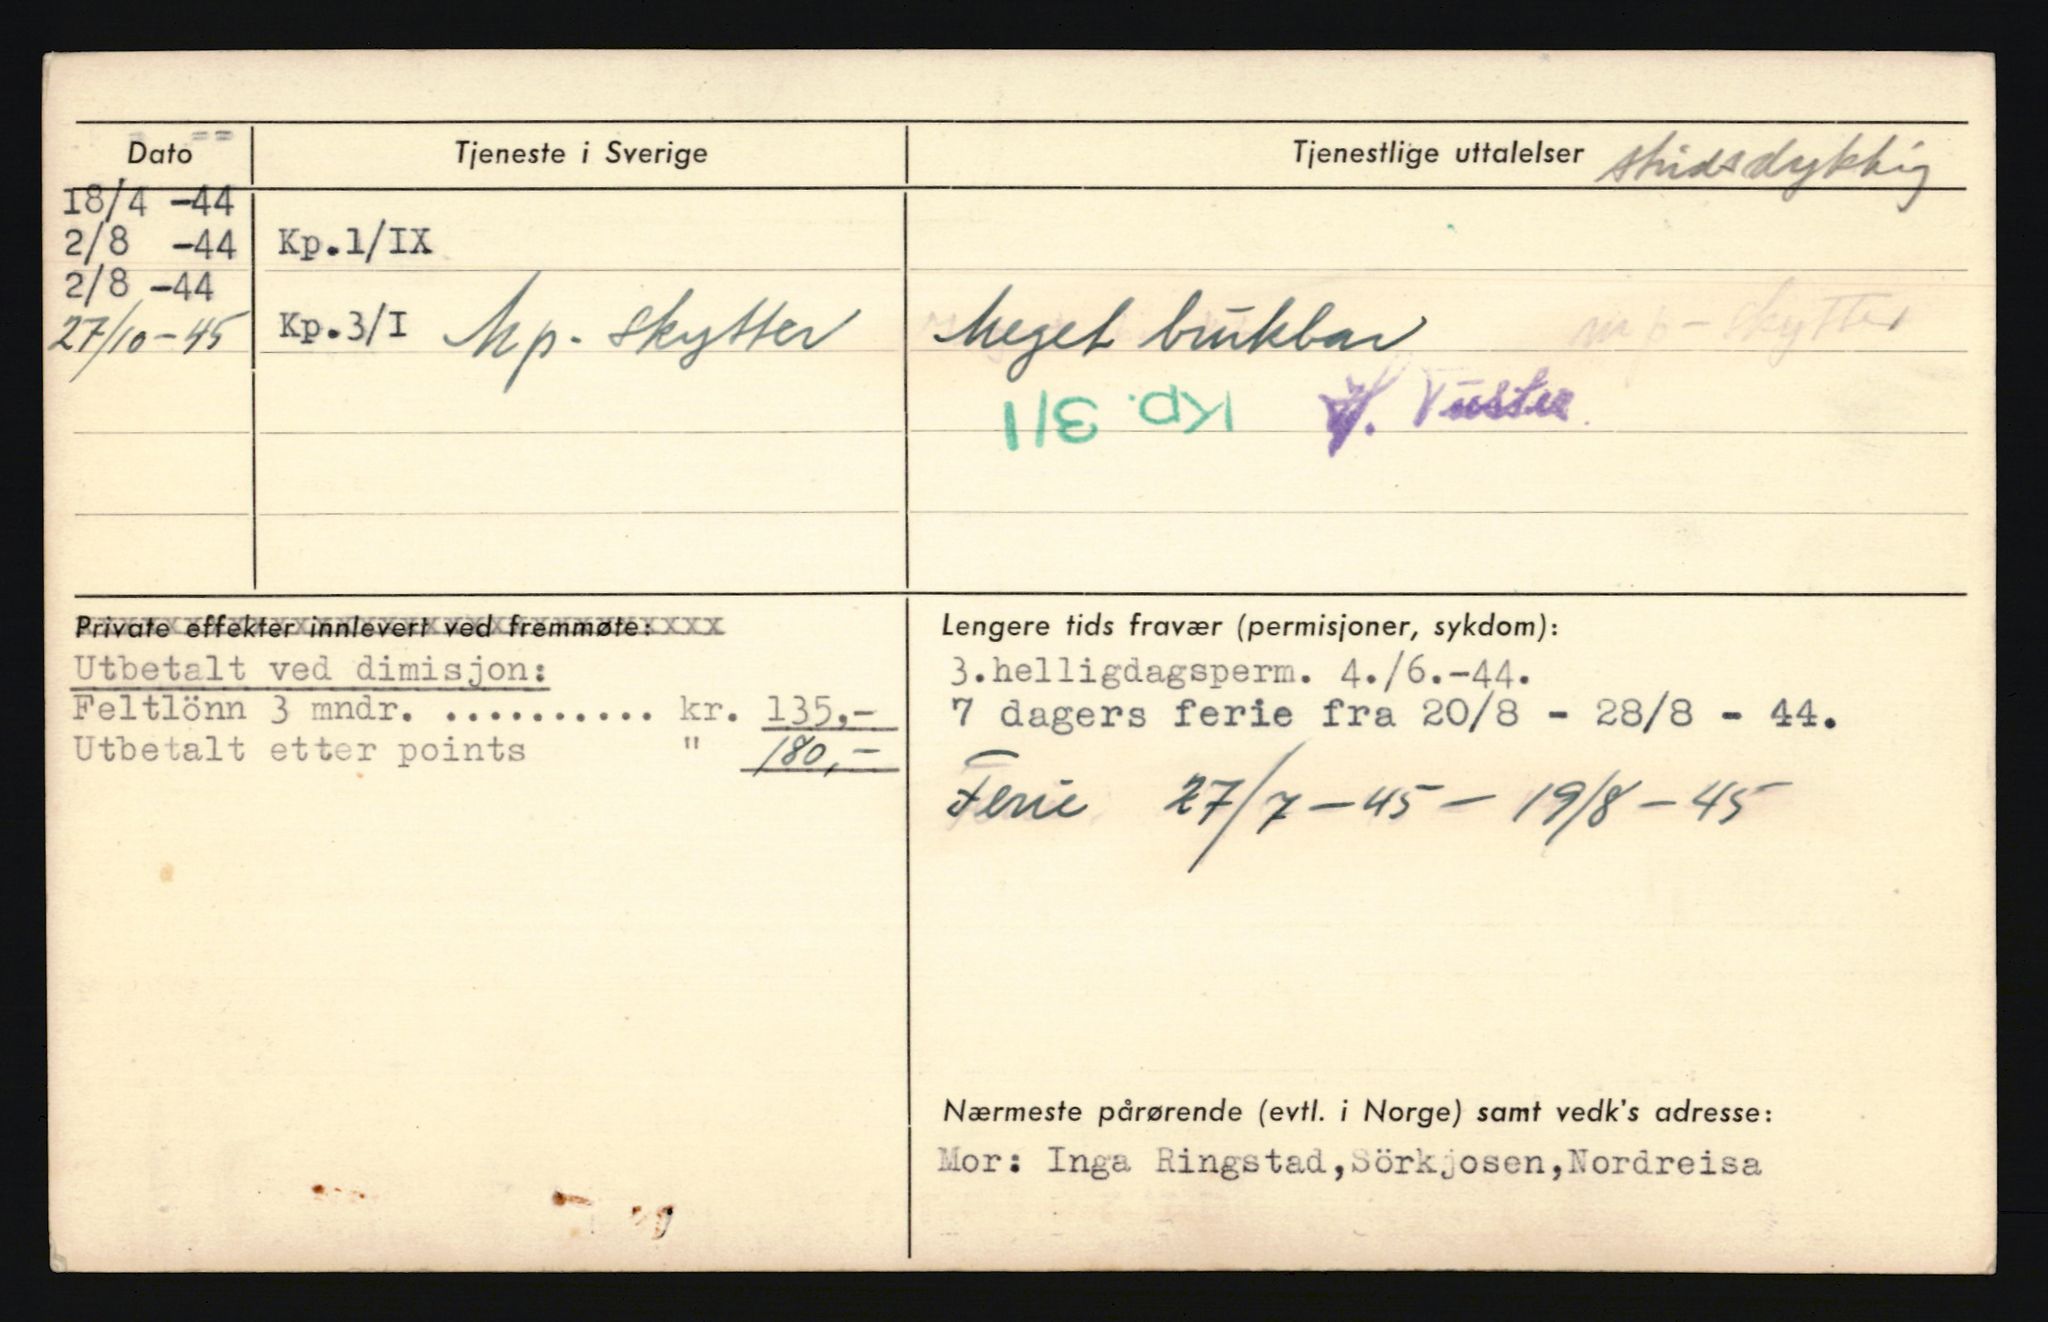 Dato
Tjeneste i Sverige
Tjenestlige uttalelser stridsdyktig
18/4 -44
2/8 -44 Kp.1/IX
2/8 -44
27/10-45 Kp.3/I Mp. skytter Meget brukbar mp-skytter
Kp. 3/1
Private effekter innlevert ved fremmøte:
Utbetalt ved dimisjon:
Feltlönn 3 mndr. .......... kr. 135,-
Utbetalt etter points " 180,-
Lengere tids fravær (permisjoner, sykdom):
3.helligdagsperm. 4./6.-44.
7 dagers ferie fra 20/8 - 28/8 - 44.
Ferie 27/7-45 - 19/8-45
Nærmeste pårørende (evtl. i Norge) samt vedk's adresse:
Mor: Inga Ringstad,Sörkjosen,Nordreisa